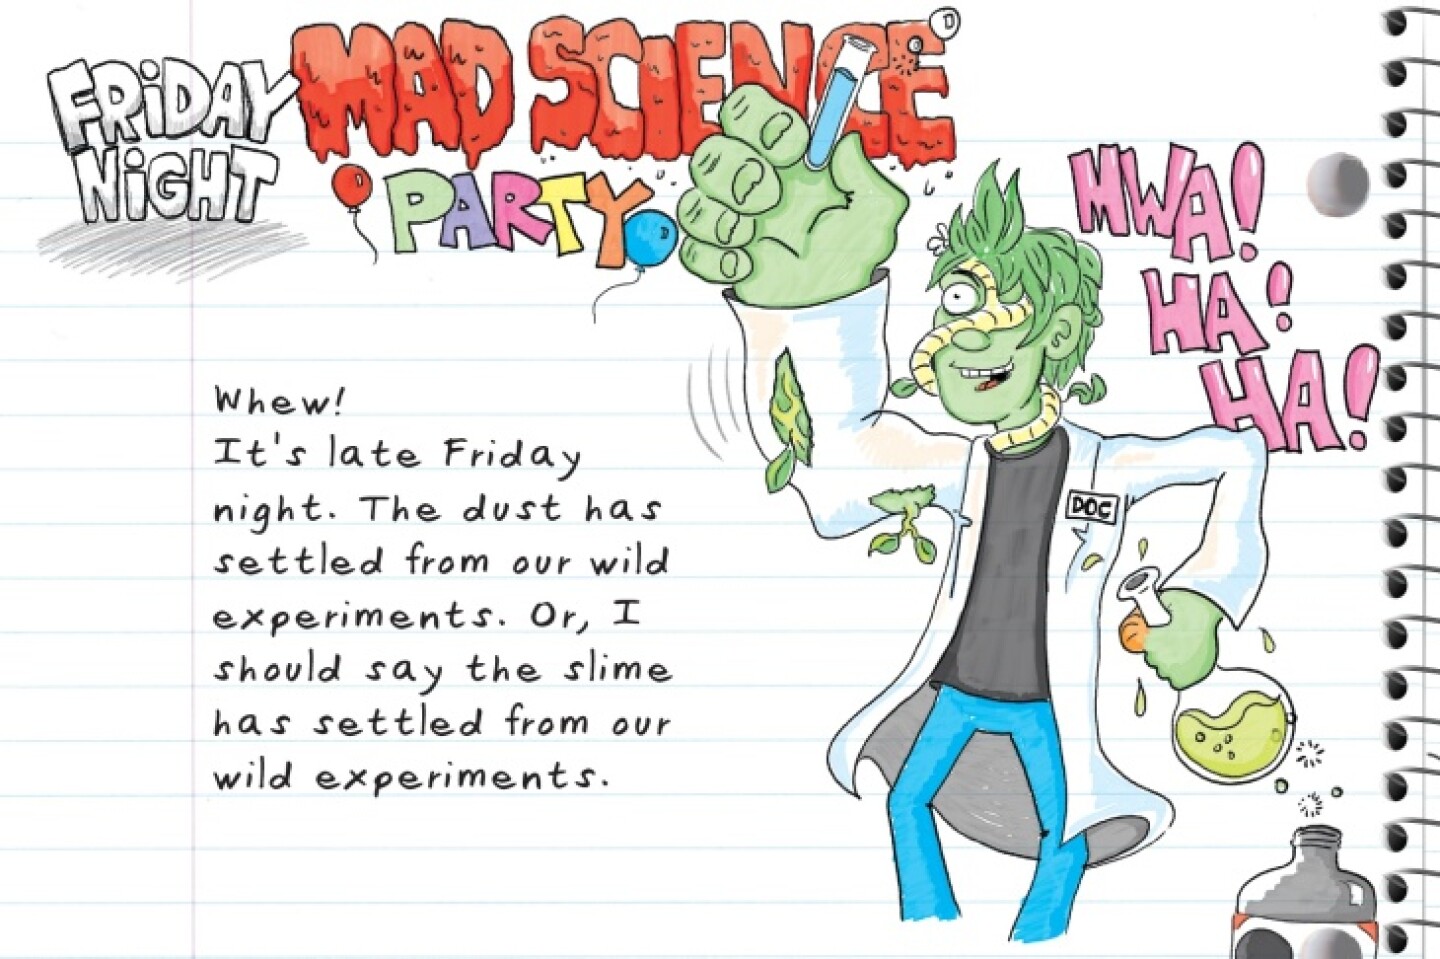 FRiDAY
NiGHT
MAD SCIENCE
PARTY
MWA!
HA!
HA!
Whew!
It's late Friday
night. The dust has
settled from our wild
experiments. Or, I
should say the slime
has settled from our
wild experiments.
DOC